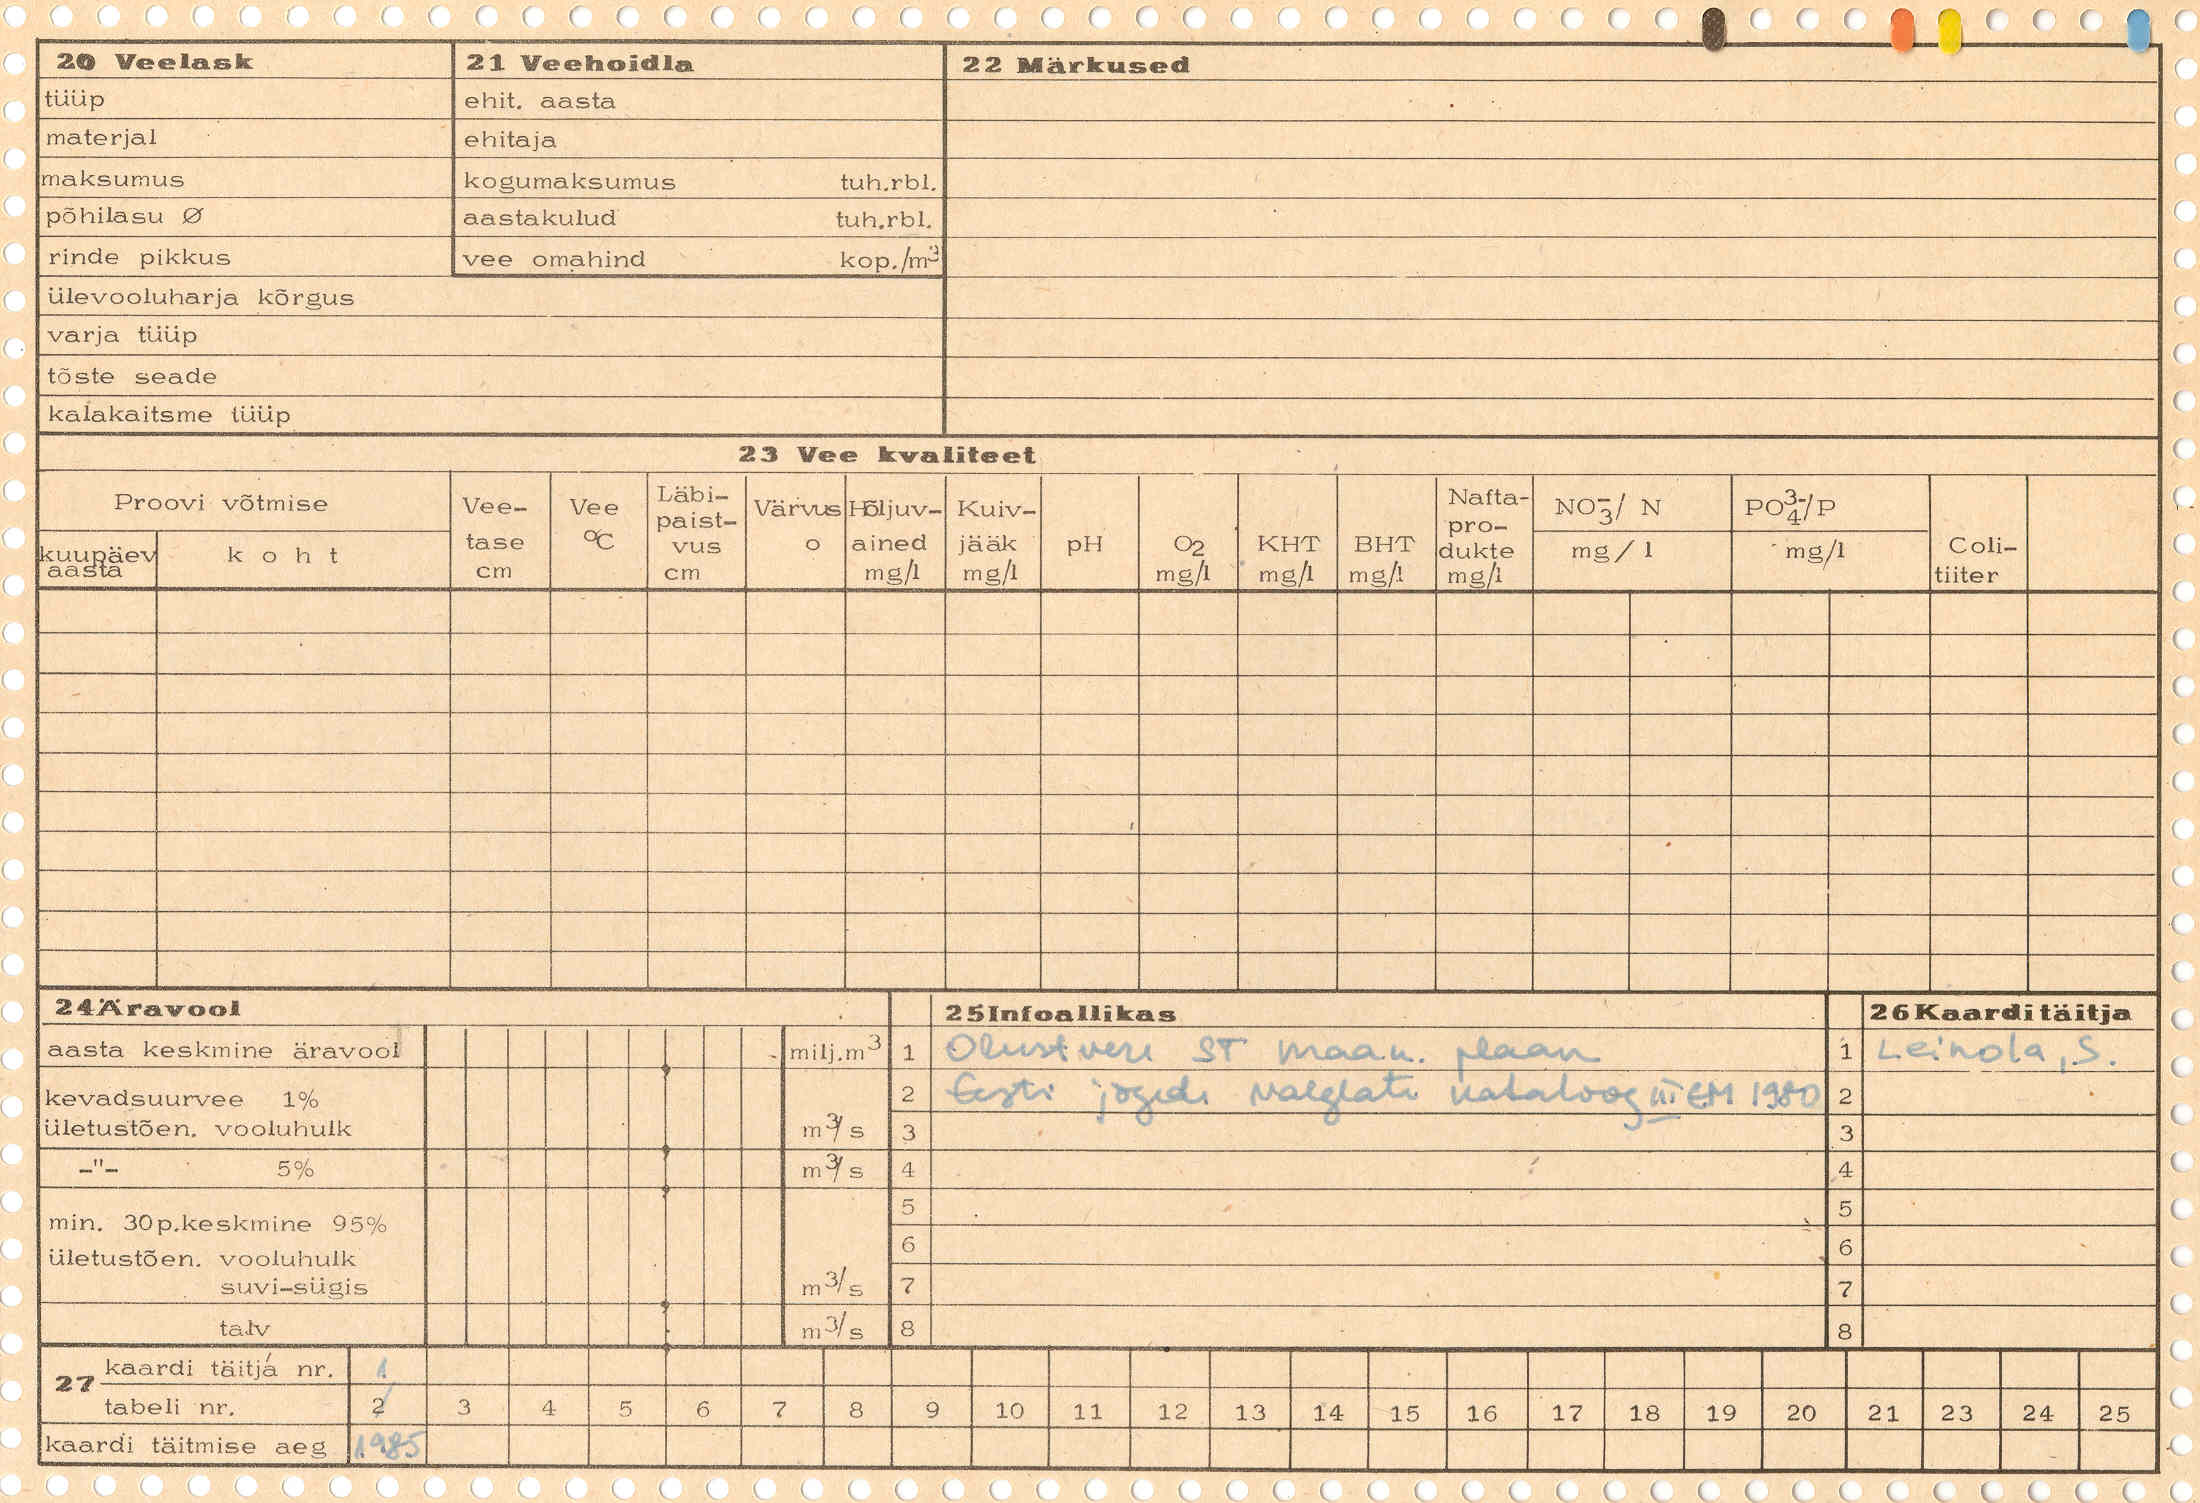 20 Veelask
tüüp
materjal
maksumus
põhilasu Ø
rinde pikkus
ülevooluharja kõrgus
varja tüüp
tõste seade
kalakaitsme tüüp
21 Veehoidla
ehit. aasta
ehitaja
kogumaksumus tuh.rbl.
aastakulud tuh.rbl.
vee omahind kop./m³
22 Märkused
23 Vee kvaliteet
Proovi võtmise
kuupäev aasta
koht
Vee-
tase
cm
Vee
°C
Läbi-
paist-
vus
cm
Värvus
o
Hõljuv-
ained
mg/l
Kuiv-
jääk
mg/l
pH
O2
mg/l
KHT
mg/l
BHT
mg/l
Nafta-
pro-
dukte
mg/l
NO₃⁻/ N
mg/l
PO₄³⁻/P
mg/l
Coli-
tiiter
24 Äravool
aasta keskmine äravool milj.m³
kevadsuurvee 1%
ületustõen. vooluhulk m³/s
-"- 5% m³/s
min. 30p.keskmine 95%
ületustõen. vooluhulk
suvi-sügis m³/s
talv m³/s
25 Infoallikas
1 Olustvere ST maan. plaan
2 Eesti jõgede valglate kataloog III EM 1980
3
4
5
6
7
8
26 Kaardi täitja
1 Leinola, S.
2
3
4
5
6
7
8
27 kaardi täitja nr. 1
tabeli nr. 2 3 4 5 6 7 8 9 10 11 12 13 14 15 16 17 18 19 20 21 23 24 25
kaardi täitmise aeg 1985